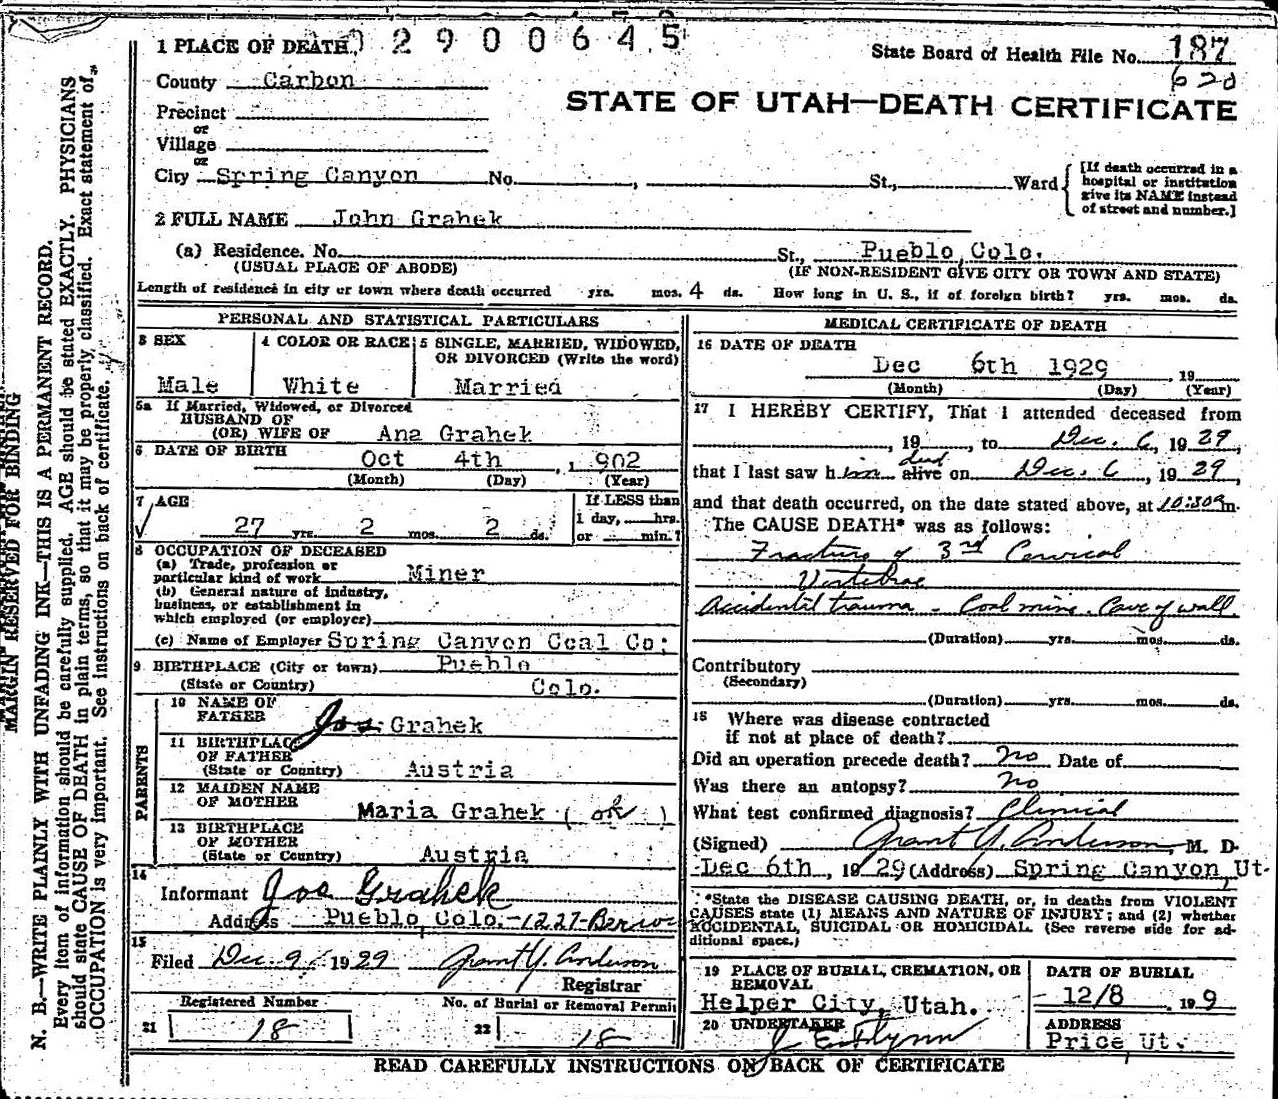 2900645
1 PLACE OF DEATH
State Board of Health File No. 187
620
County Carbon
STATE OF UTAH—DEATH CERTIFICATE
Precinct
or
Village
or
City Spring Canyon No. , St., Ward
[If death occurred in a hospital or institution give its NAME instead of street and number.]
2 FULL NAME John Grahek
(a) Residence. No. St., Pueblo, Colo.
(USUAL PLACE OF ABODE) (IF NON-RESIDENT GIVE CITY OR TOWN AND STATE)
Length of residence in city or town where death occurred yrs. mos. 4 ds. How long in U. S., if of foreign birth? yrs. mos. ds.
PERSONAL AND STATISTICAL PARTICULARS
3 SEX
Male
4 COLOR OR RACE
White
5 SINGLE, MARRIED, WIDOWED,
OR DIVORCED (Write the word)
Married
5a If Married, Widowed, or Divorced
HUSBAND OF
(OR) WIFE OF Ana Grahek
6 DATE OF BIRTH
Oct 4th , 1902
(Month) (Day) (Year)
7 AGE
27 yrs. 2 mos. 2 ds.
If LESS than
1 day, hrs.
or min.?
8 OCCUPATION OF DECEASED
(a) Trade, profession or
particular kind of work Miner
(b) General nature of industry,
business, or establishment in
which employed (or employer)
(c) Name of Employer Spring Canyon Coal Co;
9 BIRTHPLACE (City or town) Pueblo
(State or Country) Colo.
PARENTS
10 NAME OF
FATHER Jos Grahek
11 BIRTHPLACE
OF FATHER
(State or Country) Austria
12 MAIDEN NAME
OF MOTHER Maria Grahek ( ok )
13 BIRTHPLACE
OF MOTHER
(State or Country) Austria
14
Informant Joe Grahek
Address Pueblo, Colo.-1227-Berwo
15
Filed Dec. 9, 1929 Grant Y. Anderson
Registrar
Registered Number No. of Burial or Removal Permit
21 18 22 18
MEDICAL CERTIFICATE OF DEATH
16 DATE OF DEATH
Dec 6th 1929 , 19
(Month) (Day) (Year)
17 I HEREBY CERTIFY, That I attended deceased from
, 19 , to Dec. 6, 1929,
that I last saw him dead alive on Dec. 6, 1929,
and that death occurred, on the date stated above, at 10:30 m.
The CAUSE DEATH* was as follows:
Fracture of 3rd Cervical
Vertebrae
Accidental trauma - Coal mine. Cave of wall
(Duration) yrs. mos. ds.
Contributory
(Secondary)
(Duration) yrs. mos. ds.
18 Where was disease contracted
if not at place of death?
Did an operation precede death? no Date of
Was there an autopsy? no
What test confirmed diagnosis? Clinical
(Signed) Grant Y. Anderson, M. D.
Dec 6th, 1929 (Address) Spring Canyon, Ut-
*State the DISEASE CAUSING DEATH, or, in deaths from VIOLENT
CAUSES state (1) MEANS AND NATURE OF INJURY; and (2) whether
ACCIDENTAL, SUICIDAL OR HOMICIDAL. (See reverse side for ad-
ditional space.)
19 PLACE OF BURIAL, CREMATION, OR
REMOVAL
Helper City, Utah.
DATE OF BURIAL
12/8 , 19 9
20 UNDERTAKER
J E Flynn
ADDRESS
Price Ut.
READ CAREFULLY INSTRUCTIONS ON BACK OF CERTIFICATE
MARGIN RESERVED FOR BINDING
N. B.—WRITE PLAINLY WITH UNFADING INK—THIS IS A PERMANENT RECORD.
Every item of information should be carefully supplied. AGE should be stated EXACTLY. PHYSICIANS
should state CAUSE OF DEATH in plain terms, so that it may be properly classified. Exact statement of
OCCUPATION is very important. See instructions on back of certificate.